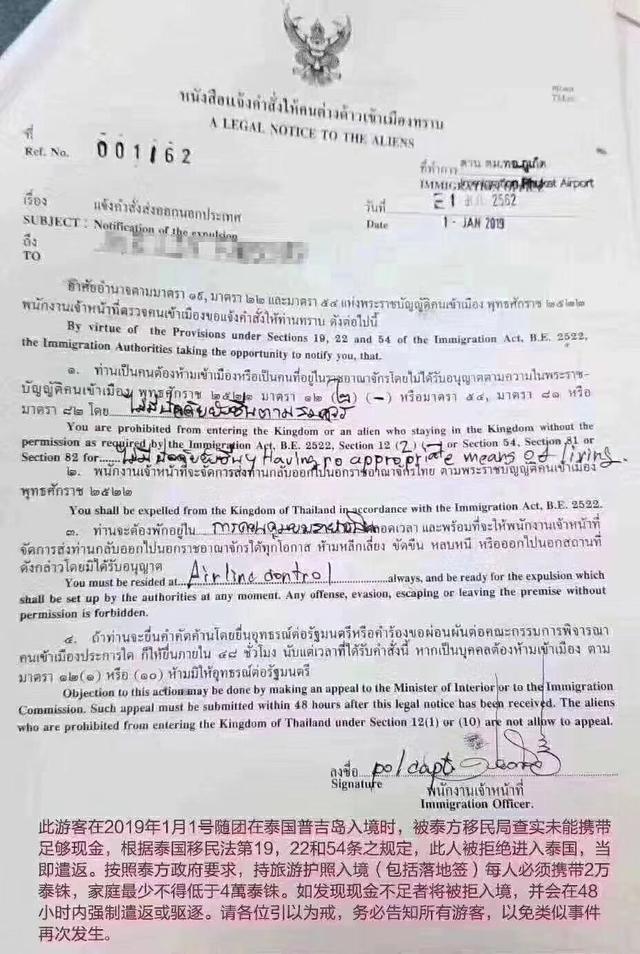 หนังสือแจ้งคำสั่งให้คนต่างด้าวเข้าเมืองทราบ
A LEGAL NOTICE TO THE ALIENS
ที่
Ref. No. 001162
ที่ทำการ ด่าน ตม.ทอ.ภูเก็ต
Phuket Airport
เรื่อง แจ้งคำสั่งส่งออกนอกประเทศ
วันที่ 2562
SUBJECT : Notification of the expulsion
Date 1 - JAN 2019
ถึง
TO
อาศัยอำนาจตามมาตรา ๑๙, มาตรา ๒๒ และมาตรา ๕๔ แห่งพระราชบัญญัติคนเข้าเมือง พุทธศักราช ๒๕๒๒
พนักงานเจ้าหน้าที่ตรวจคนเข้าเมืองขอแจ้งคำสั่งให้ท่านทราบ ดังต่อไปนี้
By virtue of the Provisions under Sections 19, 22 and 54 of the Immigration Act, B.E. 2522,
the Immigration Authorities taking the opportunity to notify you, that.
๑. ท่านเป็นคนต้องห้ามเข้าเมืองหรือเป็นคนที่อยู่ในราชอาณาจักรโดยไม่ได้รับอนุญาตตามความในพระราช-
บัญญัติคนเข้าเมือง พุทธศักราช ๒๕๒๒ มาตรา ๑๒ (๒) (-) หรือมาตรา ๕๔, มาตรา ๘๑ หรือ
มาตรา ๘๒ โดย ไม่มีปัจจัยยังชีพตามสมควร
You are prohibited from entering the Kingdom or an alien who staying in the Kingdom without the
permission as required by the Immigration Act, B.E. 2522, Section 12 (2) or Section 54, Section 81 or
Section 82 for ไม่มีปัจจัยยังชีพ Having no appropriate means of living.
๒. พนักงานเจ้าหน้าที่จะจัดการส่งท่านกลับออกไปนอกราชอาณาจักรไทย ตามพระราชบัญญัติคนเข้าเมือง
พุทธศักราช ๒๕๒๒
You shall be expelled from the Kingdom of Thailand in accordance with the Immigration Act, B.E. 2522.
๓. ท่านจะต้องพักอยู่ใน ตลอดเวลา และพร้อมที่จะให้พนักงานเจ้าหน้าที่
จัดการส่งท่านกลับออกไปนอกราชอาณาจักรได้ทุกโอกาส ห้ามหลีกเลี่ยง ขัดขืน หลบหนี หรือออกไปนอกสถานที่
ดังกล่าวโดยมิได้รับอนุญาต
You must be resided at Airline control always, and be ready for the expulsion which
shall be set up by the authorities at any moment. Any offense, evasion, escaping or leaving the premise without
permission is forbidden.
๔. ถ้าท่านจะยื่นคำคัดค้านโดยยื่นอุทธรณ์ต่อรัฐมนตรีหรือคำร้องขอผ่อนผันต่อคณะกรรมการพิจารณา
คนเข้าเมืองประการใด ก็ให้ยื่นภายใน ๔๘ ชั่วโมง นับแต่เวลาที่ได้รับคำสั่งนี้ หากเป็นบุคคลต้องห้ามเข้าเมือง ตาม
มาตรา ๑๒(๑) หรือ (๑๐) ห้ามมิให้อุทธรณ์ต่อรัฐมนตรี
Objection to this action may be done by making an appeal to the Minister of Interior or to the Immigration
Commission. Such appeal must be submitted within 48 hours after this legal notice has been received. The aliens
who are prohibited from entering the Kingdom of Thailand under Section 12(1) or (10) are not allow to appeal.
ลงชื่อ pol capt.
Signature พนักงานเจ้าหน้าที่
Immigration Officer.
此游客在2019年1月1号随团在泰国普吉岛入境时，被泰方移民局查实未能携带
足够现金，根据泰国移民法第19，22和54条之规定，此人被拒绝进入泰国，当
即遣返。按照泰方政府要求，持旅游护照入境（包括落地签）每人必须携带2万
泰铢，家庭最少不得低于4萬泰铢。如发现现金不足者将被拒入境，并会在48
小时内强制遣返或驱逐。请各位引以为戒，务必告知所有游客，以免类似事件
再次发生。